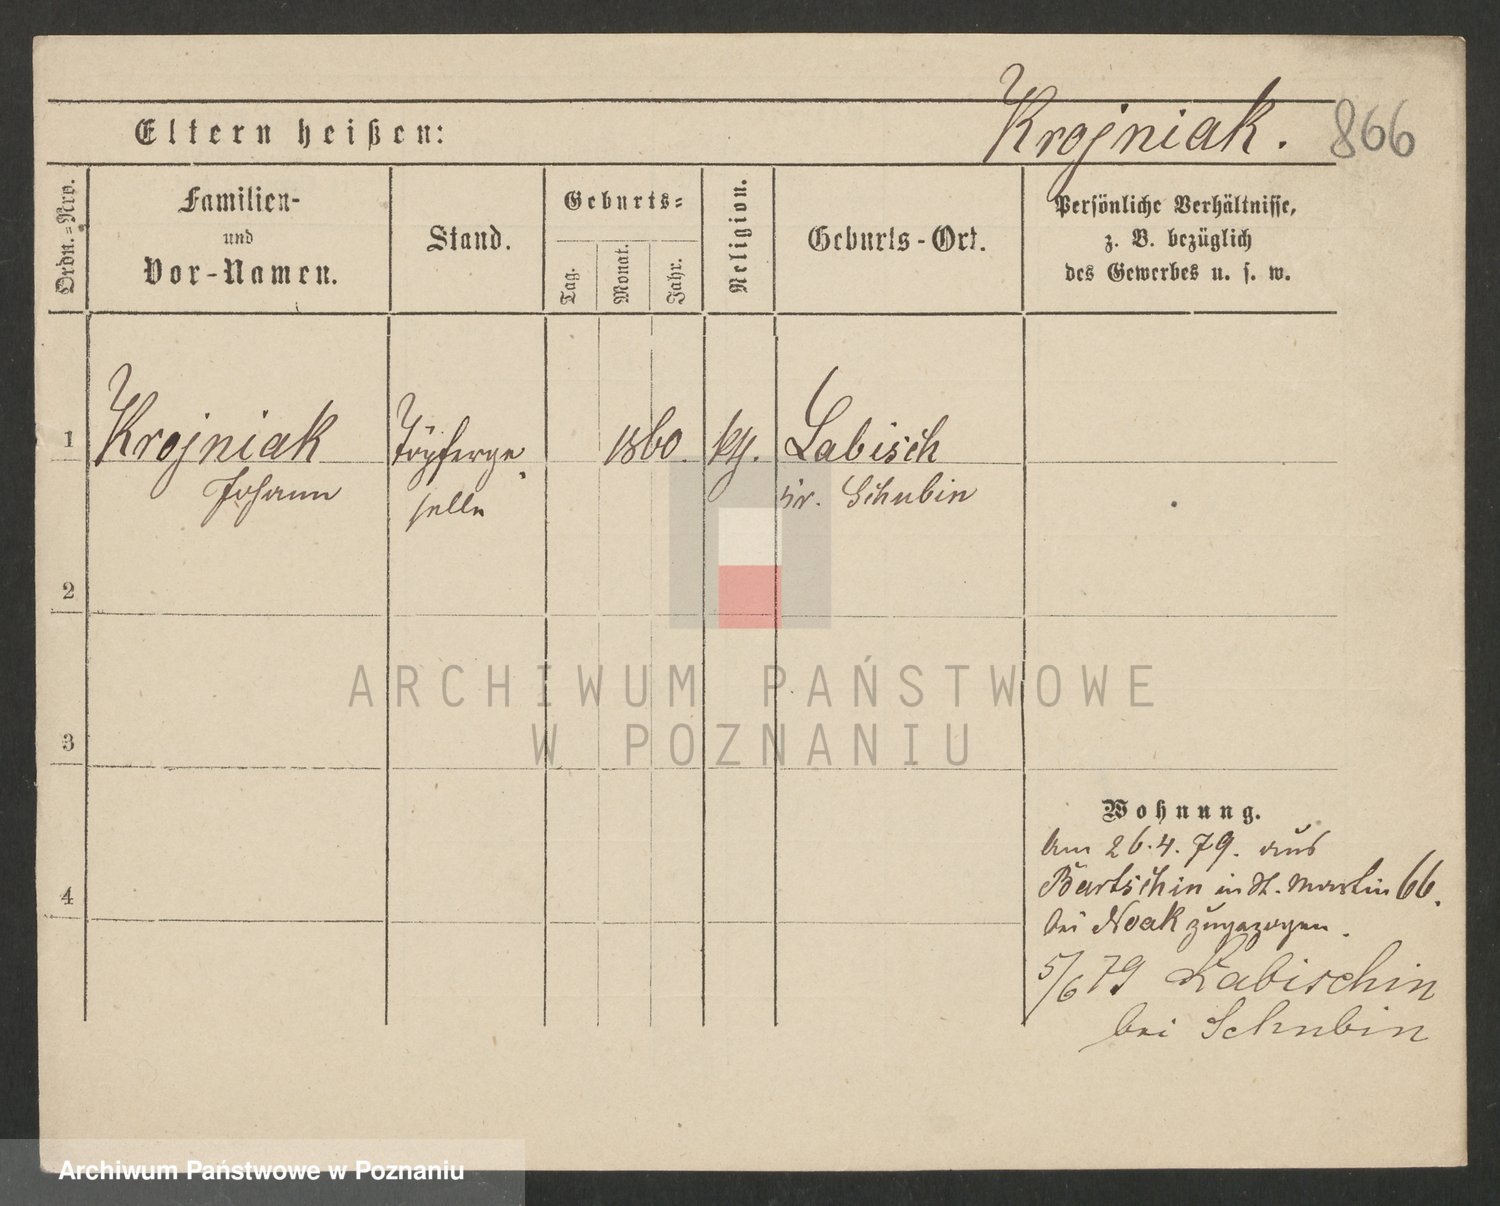 Krojniak. 866
Eltern heißen:
Ordn.=Nro.
Familien-
und
Vor-Namen.
Stand.
Geburts=
Tag.
Monat.
Jahr.
Religion.
Geburts-Ort.
Persönliche Verhältnisse,
z. B. bezüglich
des Gewerbes u. s. w.
1 Krojniak Töpferge 1860. kth. Labisch
Johann selle Kr. Schubin
2
ARCHIWUM PAŃSTWOWE
W POZNANIU
3
Wohnung.
Am 26.4.79. aus
Bartschin in St. Martin 66.
4
bei Noak zugezogen.
5/6 79 Labischin
bei Schubin
Archiwum Państwowe w Poznaniu